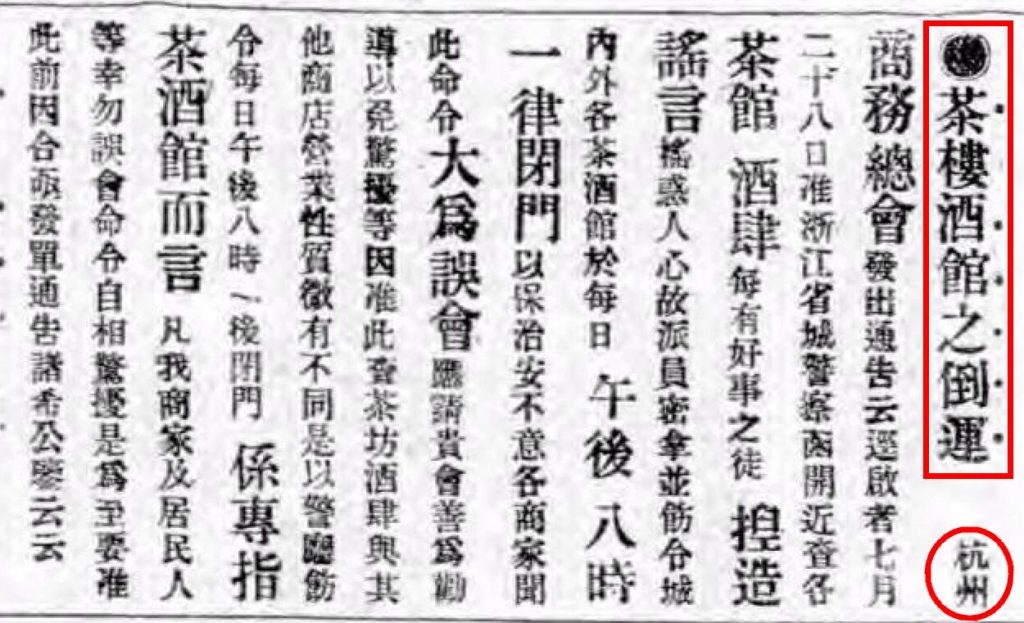 ●茶樓酒館之倒運 杭州
商務總會發出通告云逕啟者七月
二十八日准浙江省城警察函開近查各
茶館 酒肆每有好事之徒 揑造
謠言搖惑人心故派員密拿並飭令城
內外各茶酒館於每日 午後八時
一律閉門以保治安不意各商家聞
此命令大爲誤會應請貴會善爲勸
導以免驚擾等因准此查茶坊酒肆與其
他商店營業性質微有不同是以警廳飭
令每日午後八時一後閉門 係專指
茶酒館而言 凡我商家及居民人
等幸勿誤會命令自相驚擾是爲至要准
此前因合亟發單通告諸希公鑒云云